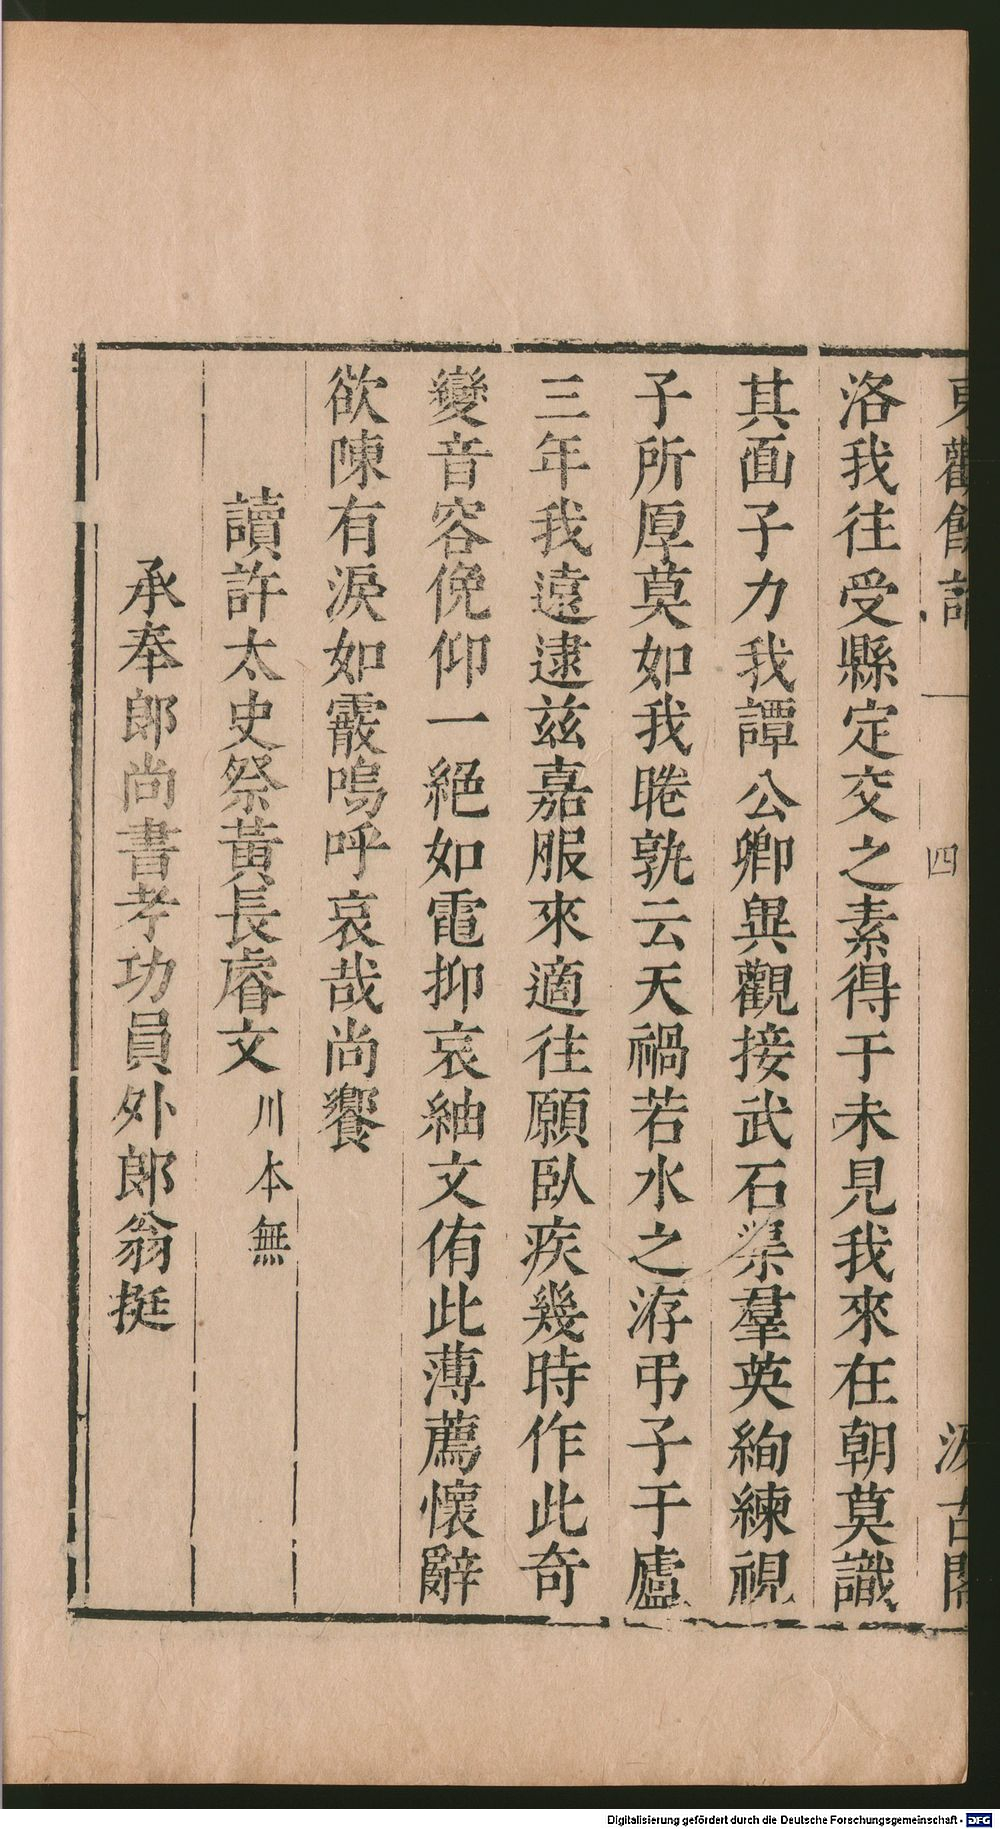 東觀餘論
四
汲古閣
洛我往受縣定交之素得于未見我來在朝莫識
其面子力我譚公卿與觀接武石渠羣英絢練視
子所厚莫如我睠孰云天禍若水之洊弔子于廬
三年我遠逮兹嘉服來適往願臥疾幾時作此奇
變音容俛仰一絕如電抑哀紬文侑此薄薦懷辭
欲陳有淚如霰嗚呼哀哉尚饗
讀許太史祭黃長睿文川本無
承奉郎尚書考功員外郎翁挺
Digitalisierung gefördert durch die Deutsche Forschungsgemeinschaft - DFG